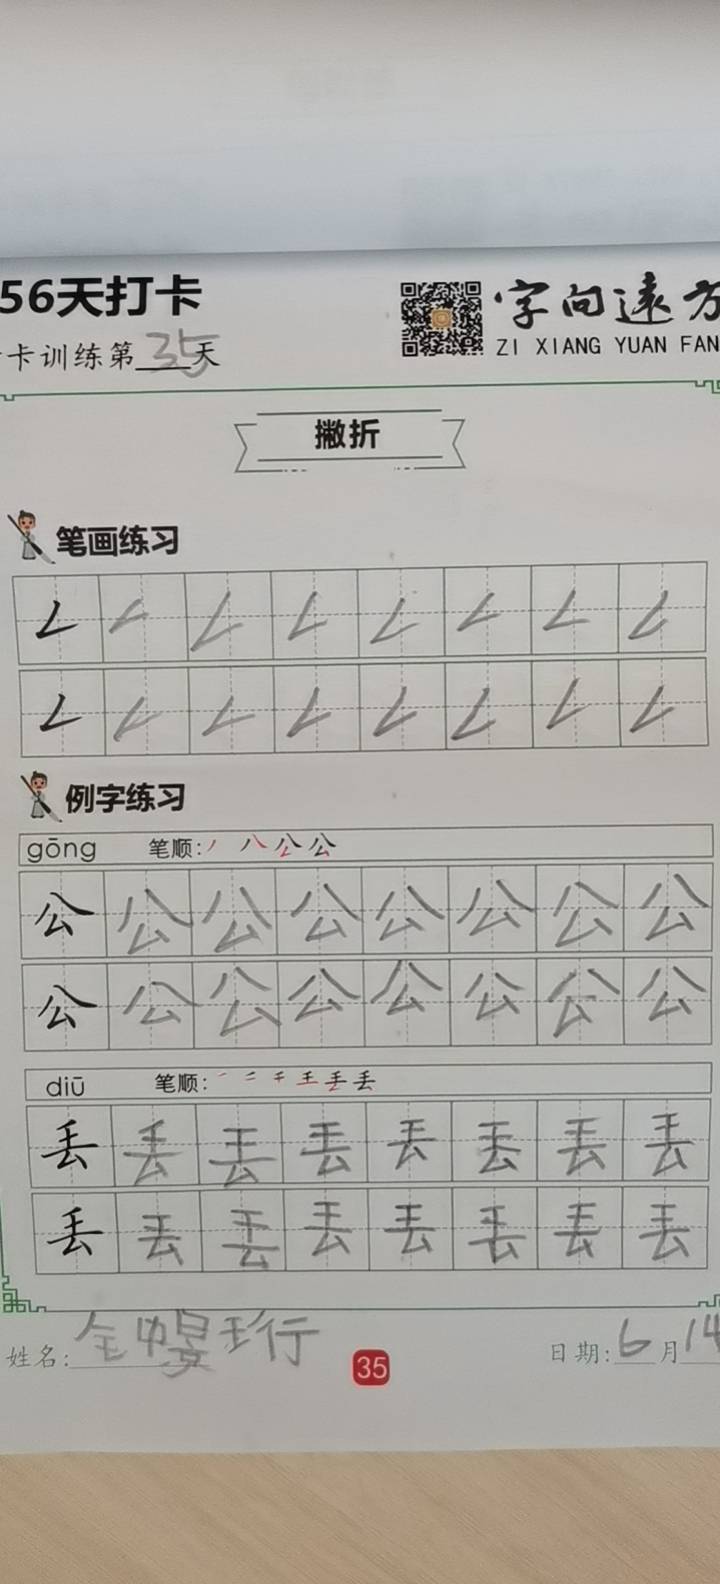 56天打卡
卡训练第35天
字向远方
ZI XIANG YUAN FAN
撇折
笔画练习
例字练习
gōng 笔顺: 丿 八 公 公
公 公 公 公 公 公 公 公
公 公 公 公 公 公 公 公
diū 笔顺: 一 二 千 王 丢 丢
丢 丢 丢 丢 丢 丢 丢 丢
丢 丢 丢 丢 丢 丢 丢 丢
姓名:
35
日期:6月14